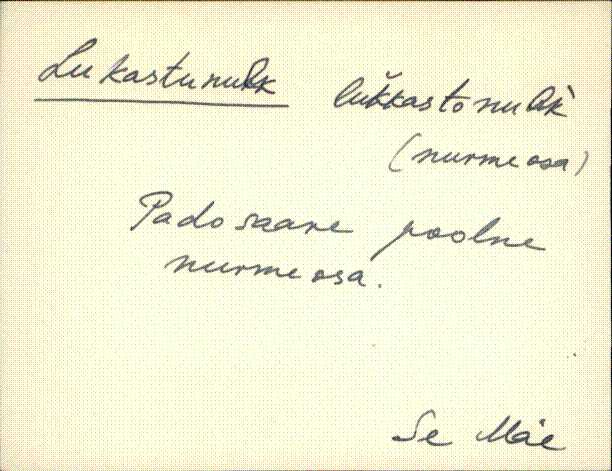 Lukastunulk lukkastonulk
(nurme osa)
Padosaare poolne
nurme osa.
Se Mäe